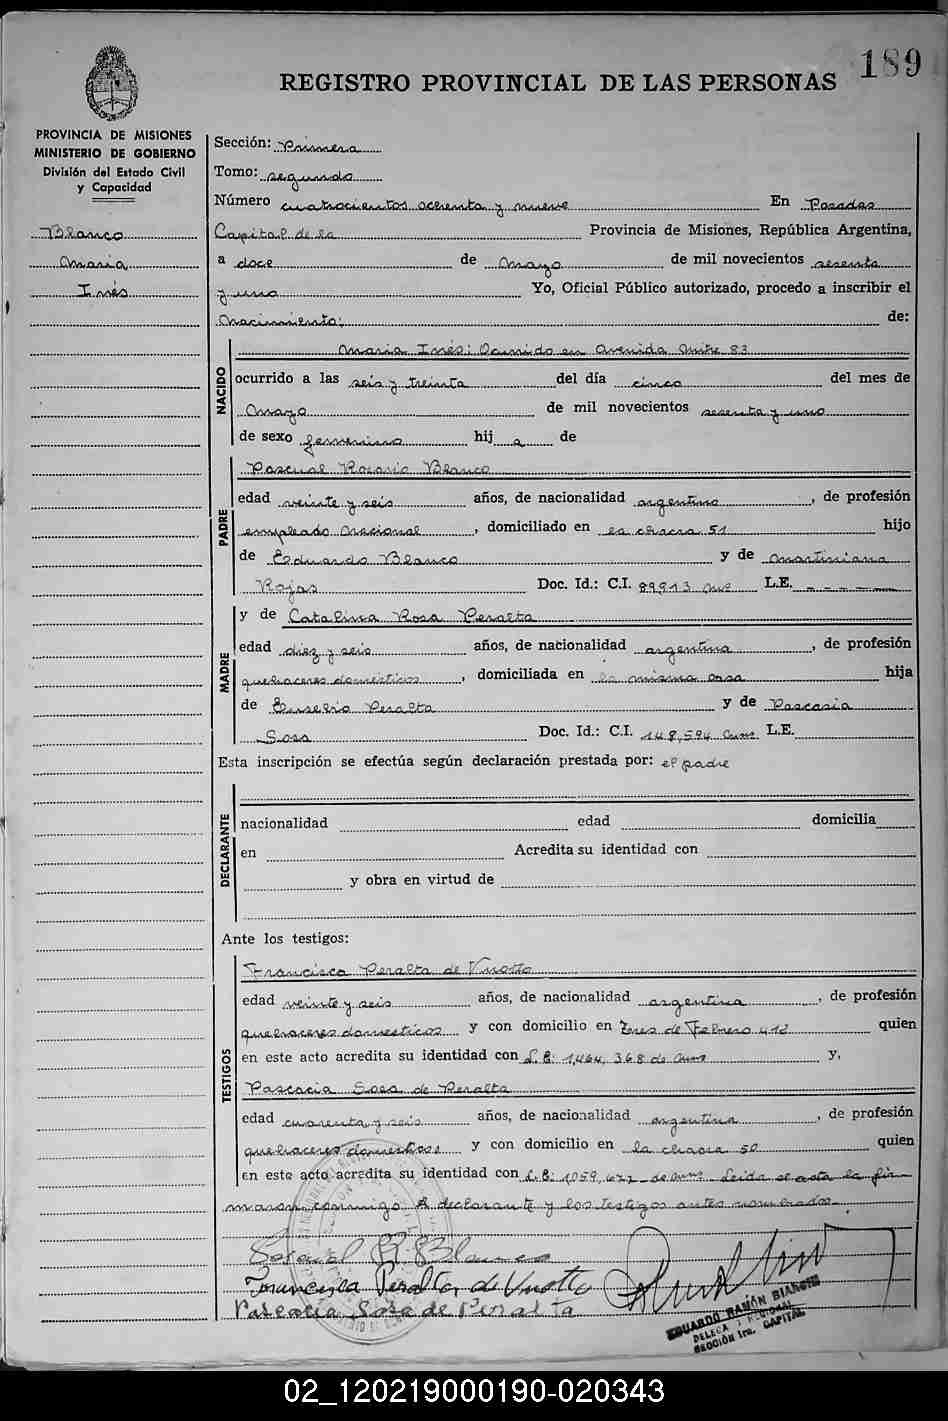 189
REGISTRO PROVINCIAL DE LAS PERSONAS
PROVINCIA DE MISIONES
MINISTERIO DE GOBIERNO
División del Estado Civil
y Capacidad
Blanco
Maria
Inés
Sección: Primera
Tomo: segundo
Número cuatrocientos ochenta y nueve En Posadas
Capital de la Provincia de Misiones, República Argentina,
a doce de Mayo de mil novecientos sesenta
y uno Yo, Oficial Público autorizado, procedo a inscribir el
Nacimiento: de:
NACIDO
Maria Inés: Ocurrido en Avenida Mitre 83
ocurrido a las seis y treinta del día cinco del mes de
Mayo de mil novecientos sesenta y uno
de sexo femenino hij a de
PADRE
Pascual Rosario Blanco
edad veinte y seis años, de nacionalidad argentino, de profesión
empleado nacional, domiciliado en la chacra 51 hijo
de Eduardo Blanco y de Martiniana
Rojas Doc. Id.: C.I. 89913 Mis L.E. - - - - -
MADRE
y de Catalina Rosa Peralta
edad diez y seis años, de nacionalidad argentina, de profesión
quehaceres domésticos, domiciliada en la misma casa hija
de Eusebio Peralta y de Pascasia
Sosa Doc. Id.: C.I. 148,594 L.E.
Esta inscripción se efectúa según declaración prestada por: el padre
DECLARANTE
nacionalidad edad domicilia
en Acredita su identidad con
y obra en virtud de
Ante los testigos:
TESTIGOS
Francisca Peralta de Vinotto
edad veinte y seis años, de nacionalidad argentina, de profesión
quehaceres domesticos y con domicilio en Tres de Febrero 412 quien
en este acto acredita su identidad con 1,464,368 de y,
Pascacia Sosa de Peralta
edad cuarenta y seis años, de nacionalidad argentina, de profesión
quehaceres domesticos y con domicilio en la chacra 50 quien
en este acto acredita su identidad con Leida el acta la fir-
maron conmigo el declarante y los testigos antes nombrados.
Blanco
Francisca Peralta de Vinotto
Pascacia Sosa de Peralta
EDUARDO RAMÓN BIANCHI
SECCIÓN 1ra. CAPITAL
02_120219000190-020343